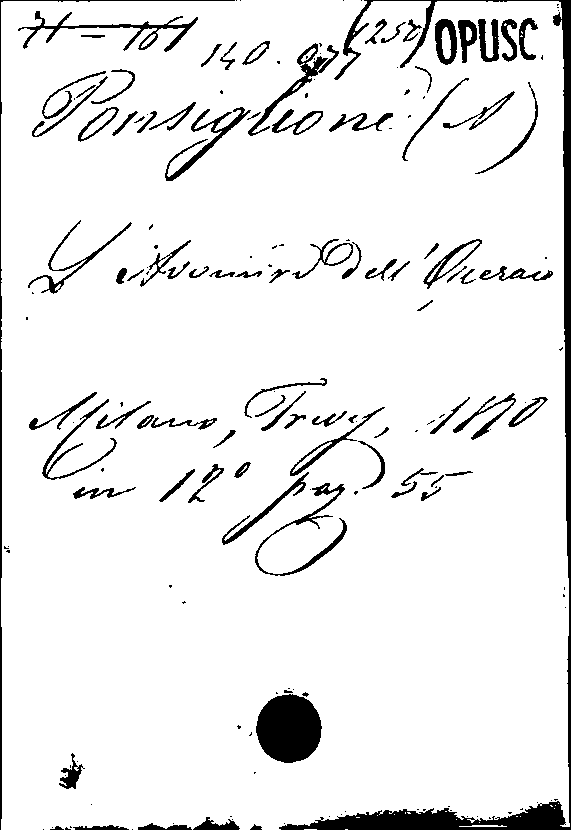 71 = 161 140. 977 (257) OPUSC.
Ponsiglioni (A)
L'Avvenire dell'Operaio
Milano, Trevef, 1870
in 12° pag. 55